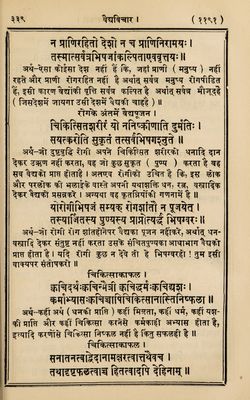 ३३९ वैद्यविचार । (११९१)
न प्राणिरहितो देशो न च प्राणिनिरामयः।
तस्मात्सर्वत्रभिषजांकल्पिताएववृत्तयः॥
अर्थ-ऐसा कोइसा देश नहीं है कि, जहां प्राणी ( मनुष्य ) नहीं
रहते और प्राणी रोगरहित नहीं है अर्थात् सर्वत्र मनुष्य रोगपीडित
हैं, इसी कारण वैद्योंकी वृत्ति सर्वत्र कल्पित है अर्थात् सर्वत्र मौजूदहै
( जिसदेशमें जायगा उसी देशमें वैद्यकी चाहहै ) ॥
रोगके अंतमें वैद्यपूजन
चिकित्सितशरीरं यो ननिष्क्रीणाति दुर्मतिः।
सयत्करोति सुकृतं तत्सर्वंभिषगश्नुते॥
अर्थ-जो दुष्टबुद्धि रोगी अपने चिकित्सित शरीरको धनादि दान
देकर उऋण नहीं करता, वह जो कुछ सुकृत ( पुण्य ) करता है वह
सब वैद्यको प्राप्त होताहै । अतएव रोगीको उचित है कि, इस लोक
और परलोक की भलाईके वास्ते अपनी यथाशक्ति धन, रत्न, वस्त्रादिक
देकर वैद्यको प्रसन्नकरे । अन्यथा वह कृतघ्नियोंकी गणनामें है ॥
योरोगीभिषजं सम्यक् रोगशांतो न पूजयेत्।
तस्यार्जितस्य पुण्यस्य प्राप्रोत्यर्द्धं भिषग्वरः॥
अर्थ-जो रोगी रोग शांतहोनेपर वैद्यका पूजन नहींकरे, अर्थात् धन-
वस्त्रादि देकर संतुष्ट नहीं करता उसके संचितपुण्यका आधाभाग वैद्यको
प्राप्त होता है । यदि रोगी कुछ न देवे तो हे भिषग्वरहो ! तुम इसी
वाक्यपर संतोषकरो ॥
चिकित्साकाफल ।
क्वचिदर्थःक्वचिन्मैत्री क्वचिद्धर्मःक्वचिद्यशः।
कर्माभ्यासःक्वचिच्चापिचिकित्सानास्तिनिष्फला॥
अर्थ-कहीं अर्थ (धनकी प्राप्ति) कहीं मित्रता, कहीं धर्म, कहीं यश-
की प्राप्ति और कहीं चिकित्सा करनेसे कर्मकाही अभ्यास होता है,
इत्यादि कारणोंसे चिकित्सा निष्फल नहीं है किंतु सफलही है ॥
चिकित्साकाफल
सनातनत्वाद्वेदानामक्षरत्वात्तथैवच ।
तथादृष्टफलत्वाच्च हितत्वादपि देहिनाम् ॥